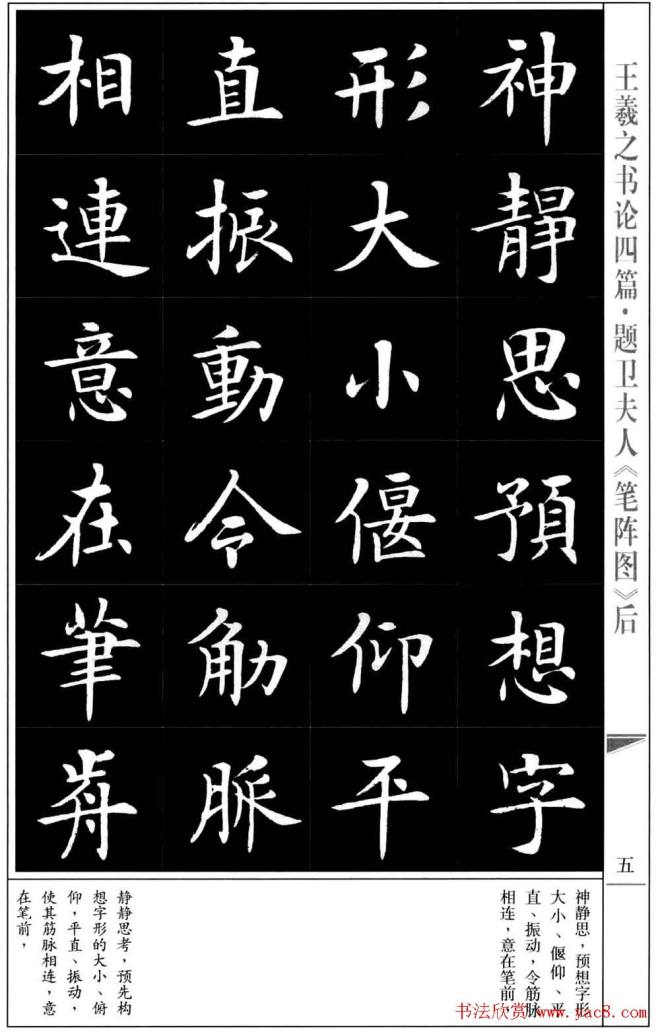 王羲之书论四篇·题卫夫人《笔阵图》后
五
神靜思預想字
形大小偃仰平
直振動令觔脈
相連意在筆歬
神静思，预想字形
大小、偃仰、平
直、振动，令筋脉
相连，意在笔前，
静静思考，预先构
想字形的大小、俯
仰，平直、振动，
使其筋脉相连，意
在笔前，
书法欣赏 www.yac8.com